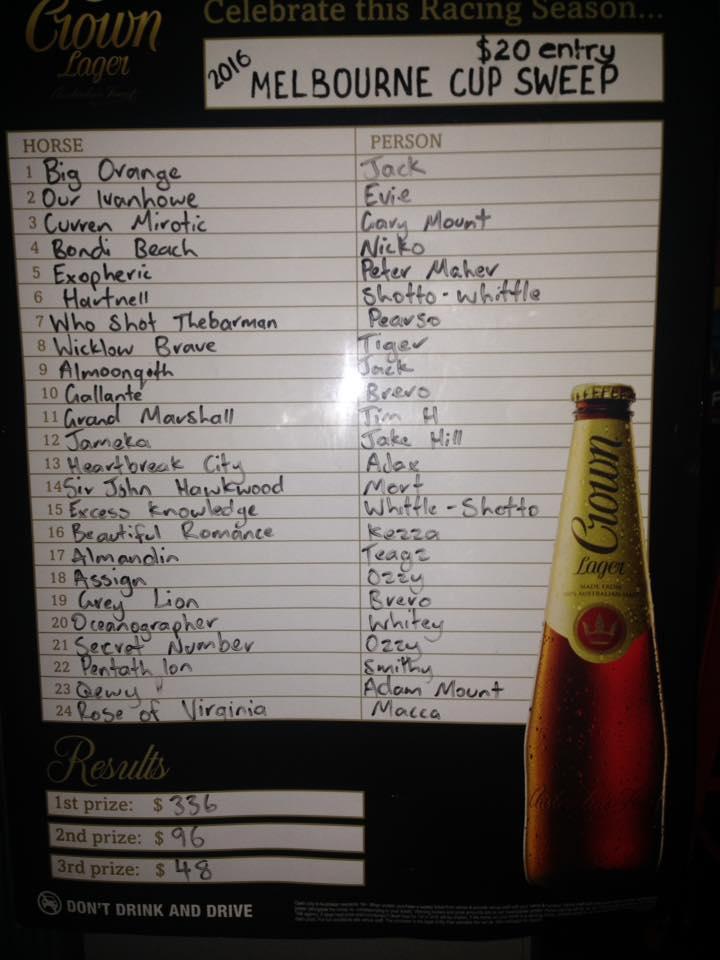 Celebrate this Racing Season...
Crown
Lager
$20 entry
2016 MELBOURNE CUP SWEEP
HORSE PERSON
1 Big Orange Jack
2 Our Ivanhowe Evie
3 Curren Mirotic Gary Mount
4 Bondi Beach Nicko
5 Exopheric Peter Maher
6 Hartnell Shotto-Whittle
7 Who Shot Thebarman Pearso
8 Wicklow Brave Tiger
9 Almoonqith Jack
10 Gallante Brevo
11 Grand Marshall Tim H
12 Jameka Jake Hill
13 Heartbreak City Adax
14 Sir John Hawkwood Mort
15 Excess Knowledge Whittle-Shotto
16 Beautiful Romance Kezza
17 Almandin Teagz
18 Assign Ozzy
19 Grey Lion Brevo
20 Oceanographer Whitey
21 Secret Number Ozzy
22 Pentath lon Smithy
23 Qewy Adam Mount
24 Rose of Virginia Macca
Crown
Lager
MADE FROM
Results
1st prize: $ 336
2nd prize: $ 96
3rd prize: $ 48
DON'T DRINK AND DRIVE